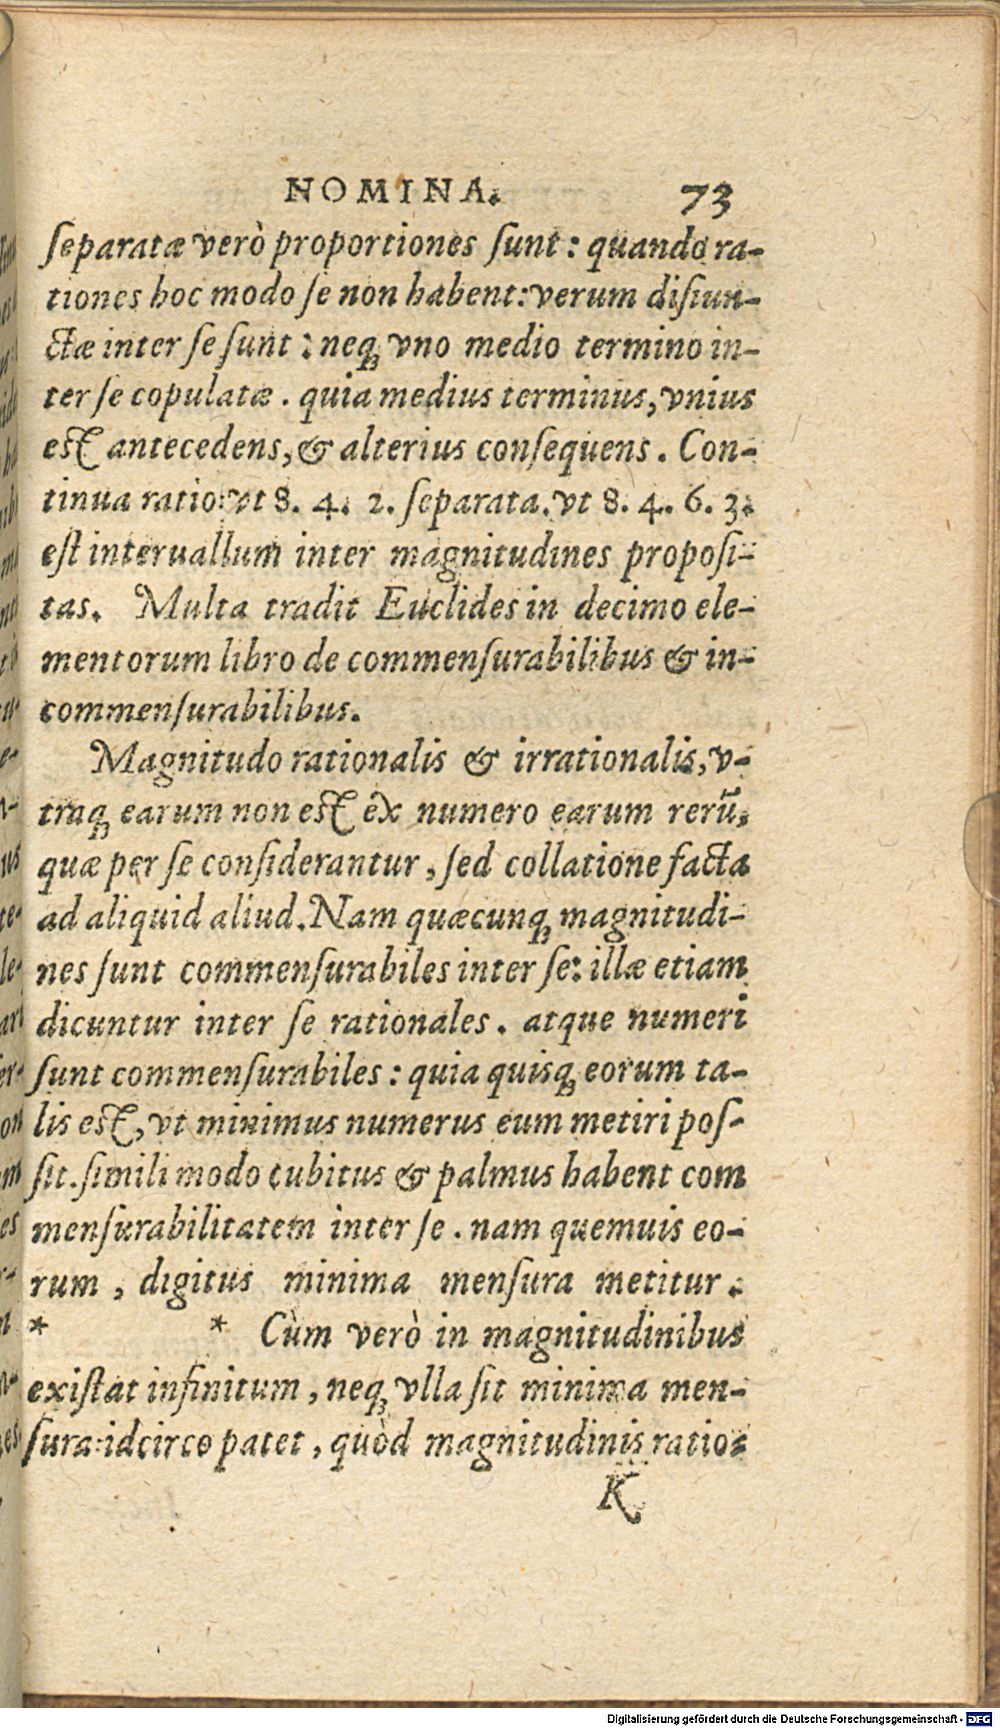 NOMINA. 73
ſeparatæ verò proportiones ſunt: quando ra-
tiones hoc modo ſe non habent: verum diſiun-
ctæ inter ſe ſunt: neqꝫ vno medio termino in-
ter ſe copulatæ. quia medius terminus, vnius
eſt antecedens, & alterius conſequens. Con-
tinua ratio: vt 8. 4. 2. ſeparata. vt 8. 4. 6. 3.
eſt interuallum inter magnitudines propoſi-
tas. Multa tradit Euclides in decimo ele-
mentorum libro de commenſurabilibus & in-
commenſurabilibus.
Magnitudo rationalis & irrationalis, v-
traqꝫ earum non eſt ex numero earum rerū,
quæ per ſe conſiderantur, ſed collatione facta
ad aliquid aliud. Nam quæcunqꝫ magnitudi-
nes ſunt commenſurabiles inter ſe: illæ etiam
dicuntur inter ſe rationales. atque numeri
ſunt commenſurabiles: quia quisqꝫ eorum ta-
lis eſt, vt minimus numerus eum metiri poſ-
ſit. ſimili modo cubitus & palmus habent com
menſurabilitatem inter ſe. nam quemuis eo-
rum, digitus minima menſura metitur.
* * Cùm verò in magnitudinibus
exiſtat infinitum, neqꝫ vlla ſit minima men-
ſura: idcirco patet, quòd magnitudinis ratio-
K
Digitalisierung gefördert durch die Deutsche Forschungsgemeinschaft - DFG